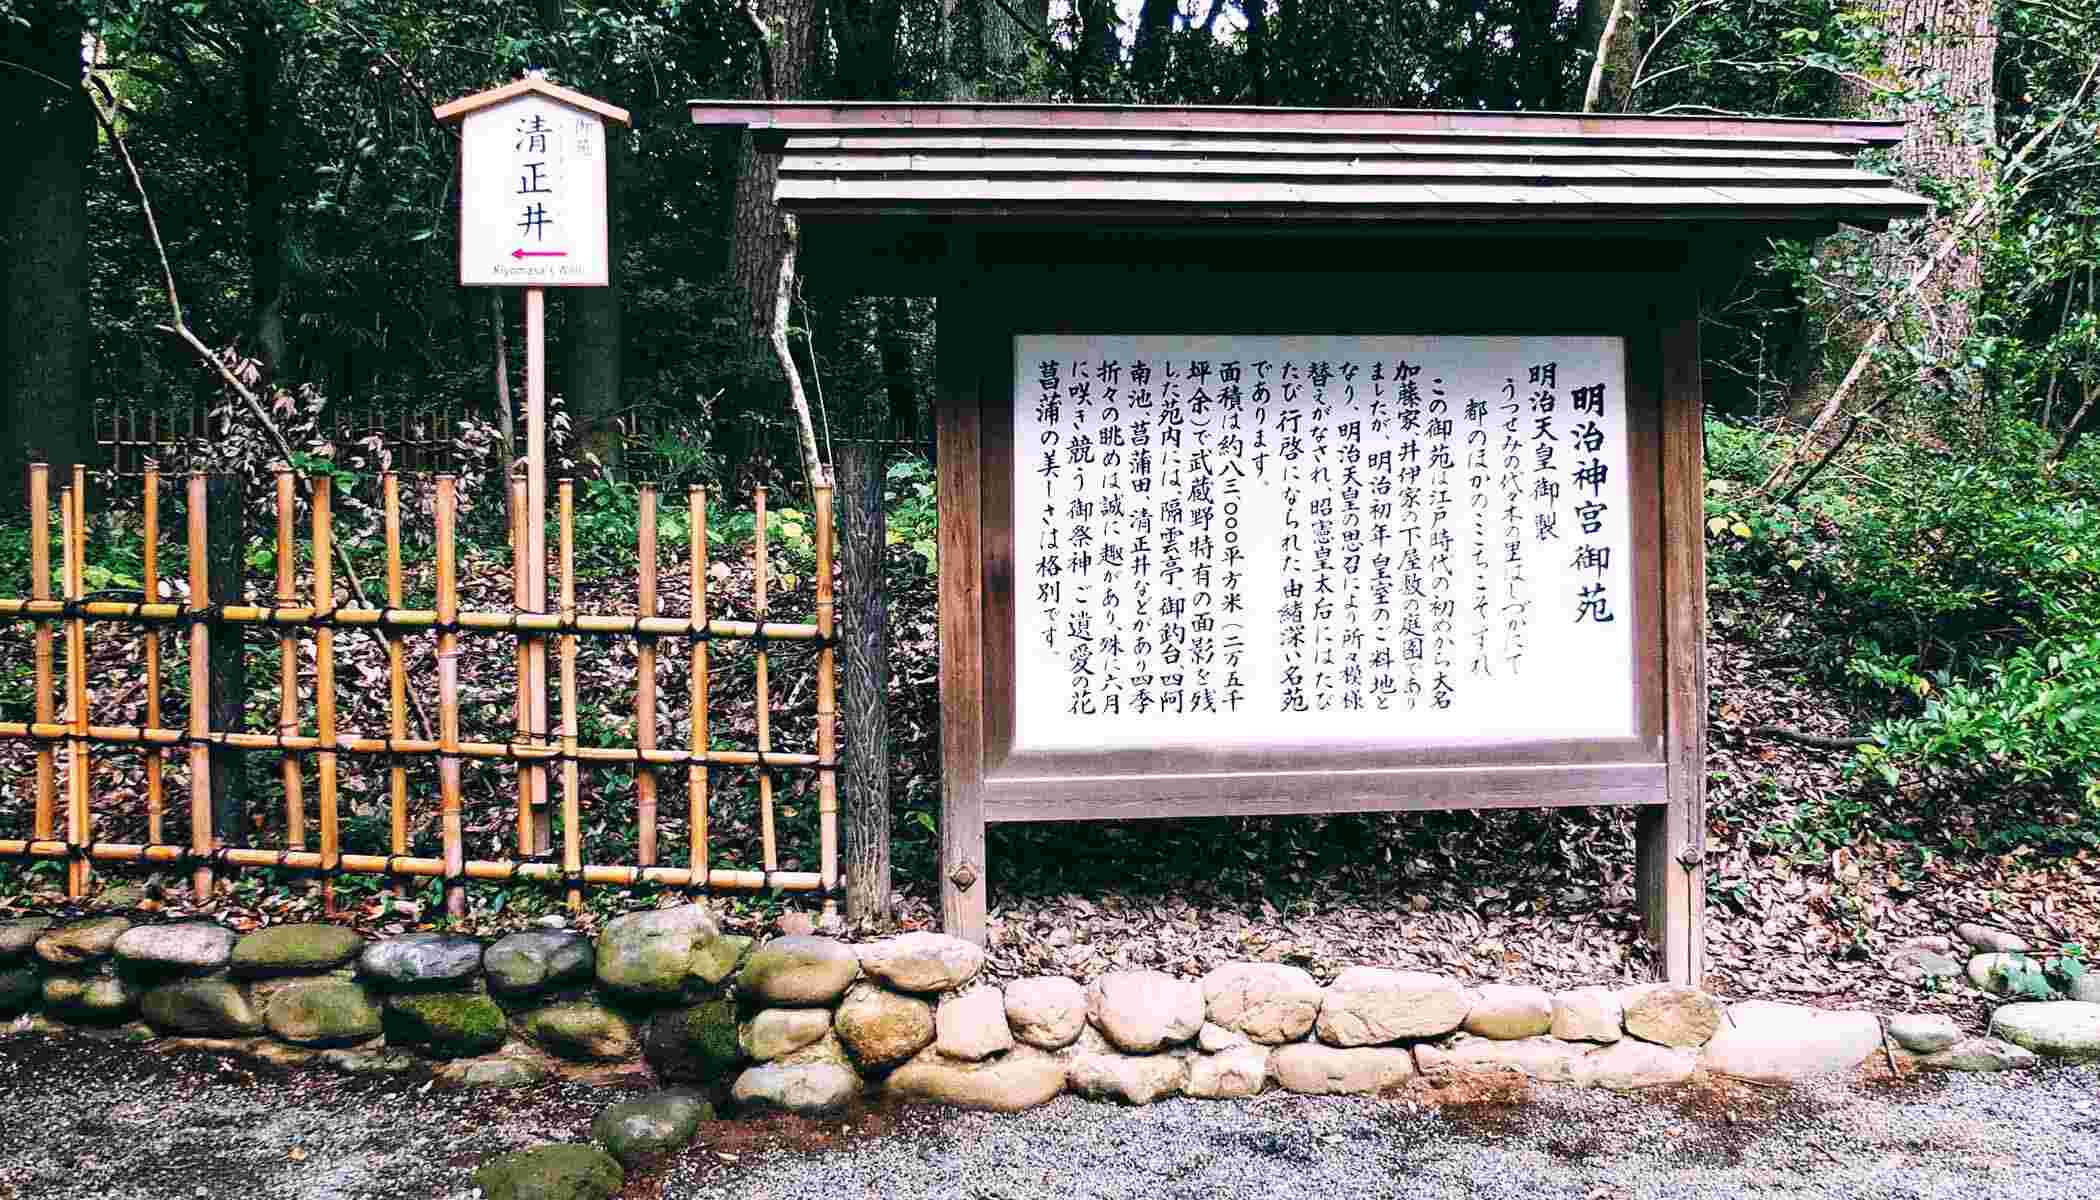 御苑
清正井
Kiyomasa's Well
明治神宮御苑
明治天皇御製
うつせみの代々木の里はしづかにて
都のほかのここちこそすれ
この御苑は江戸時代の初めから大名
加藤家、井伊家の下屋敷の庭園であり
ましたが、明治初年皇室のご料地と
なり、明治天皇の思召により所々模様
替えがなされ、昭憲皇太后にはたび
たび行啓になられた由緒深い名苑
であります。
面積は約八三、〇〇〇平方米(二万五千
坪余)で武蔵野特有の面影を残
した苑内には、隔雲亭、御釣台、四阿
南池、菖蒲田、清正井などがあり四季
折々の眺めは誠に趣があり、殊に六月
に咲き競う御祭神ご遺愛の花
菖蒲の美しさは格別です。